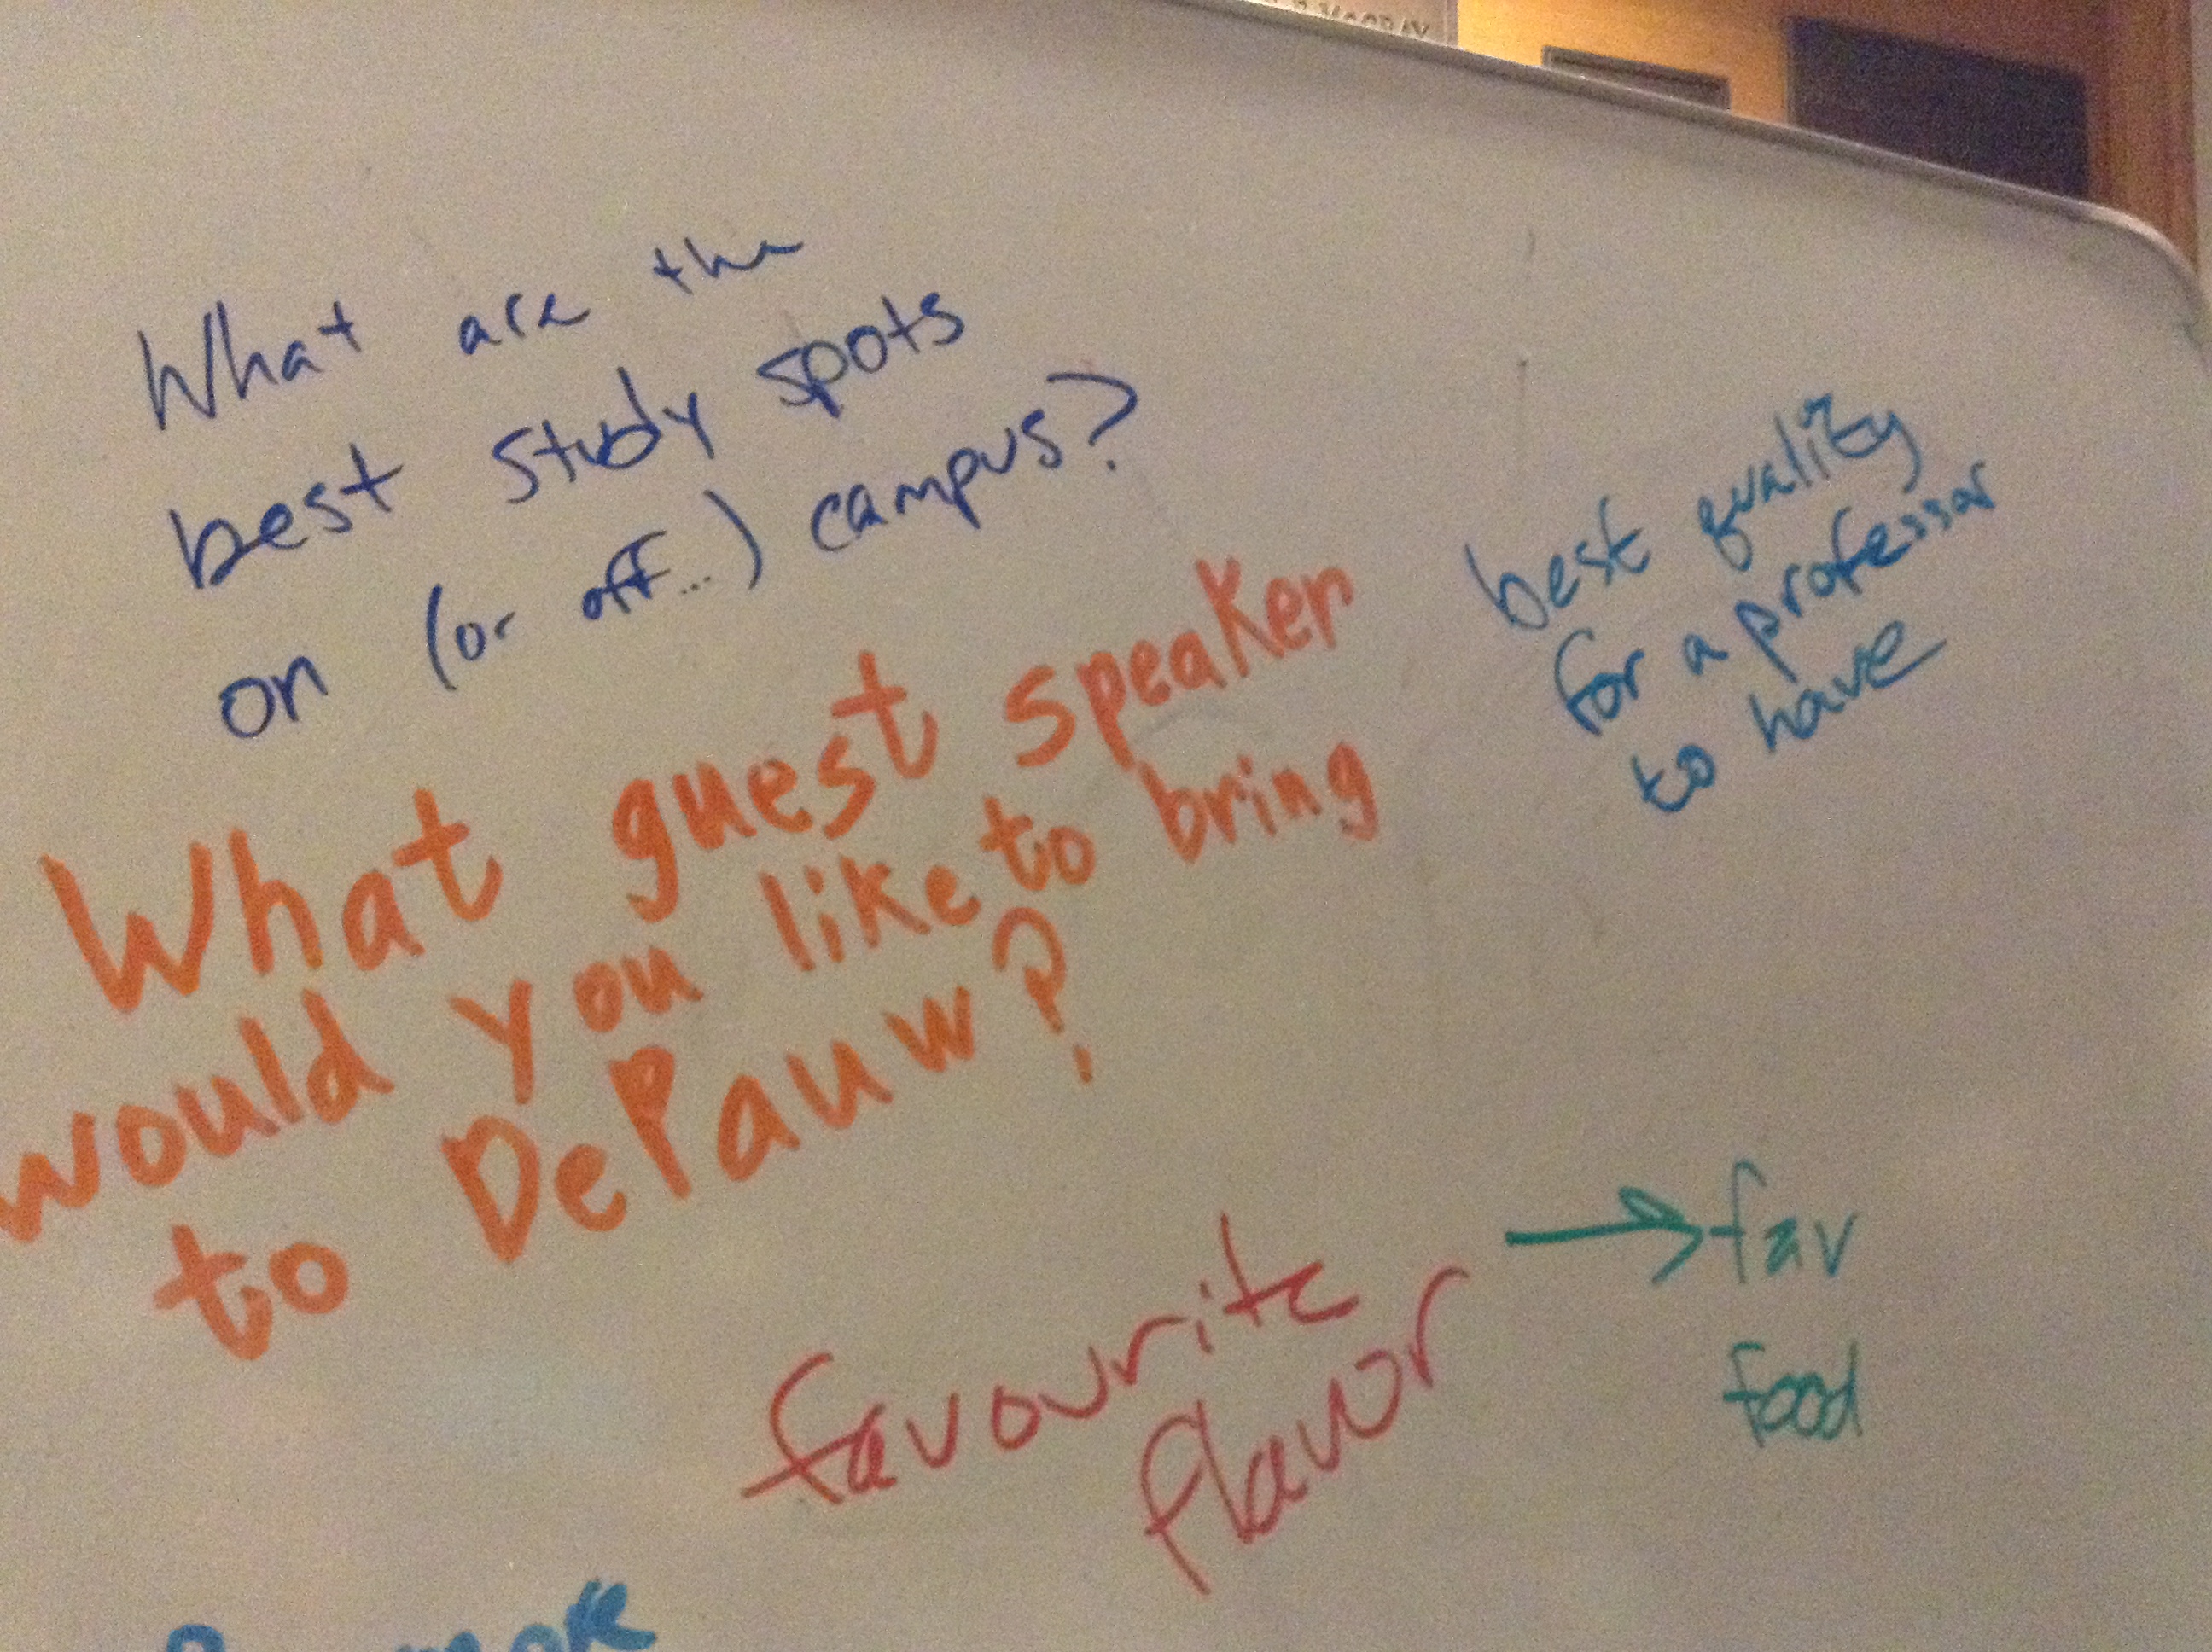 What are the
best study spots
on (or off...) campus?
best quality
for a professor
to have
What guest speaker
would you like to bring
to DePauw?
favourite
flavor
fav
food